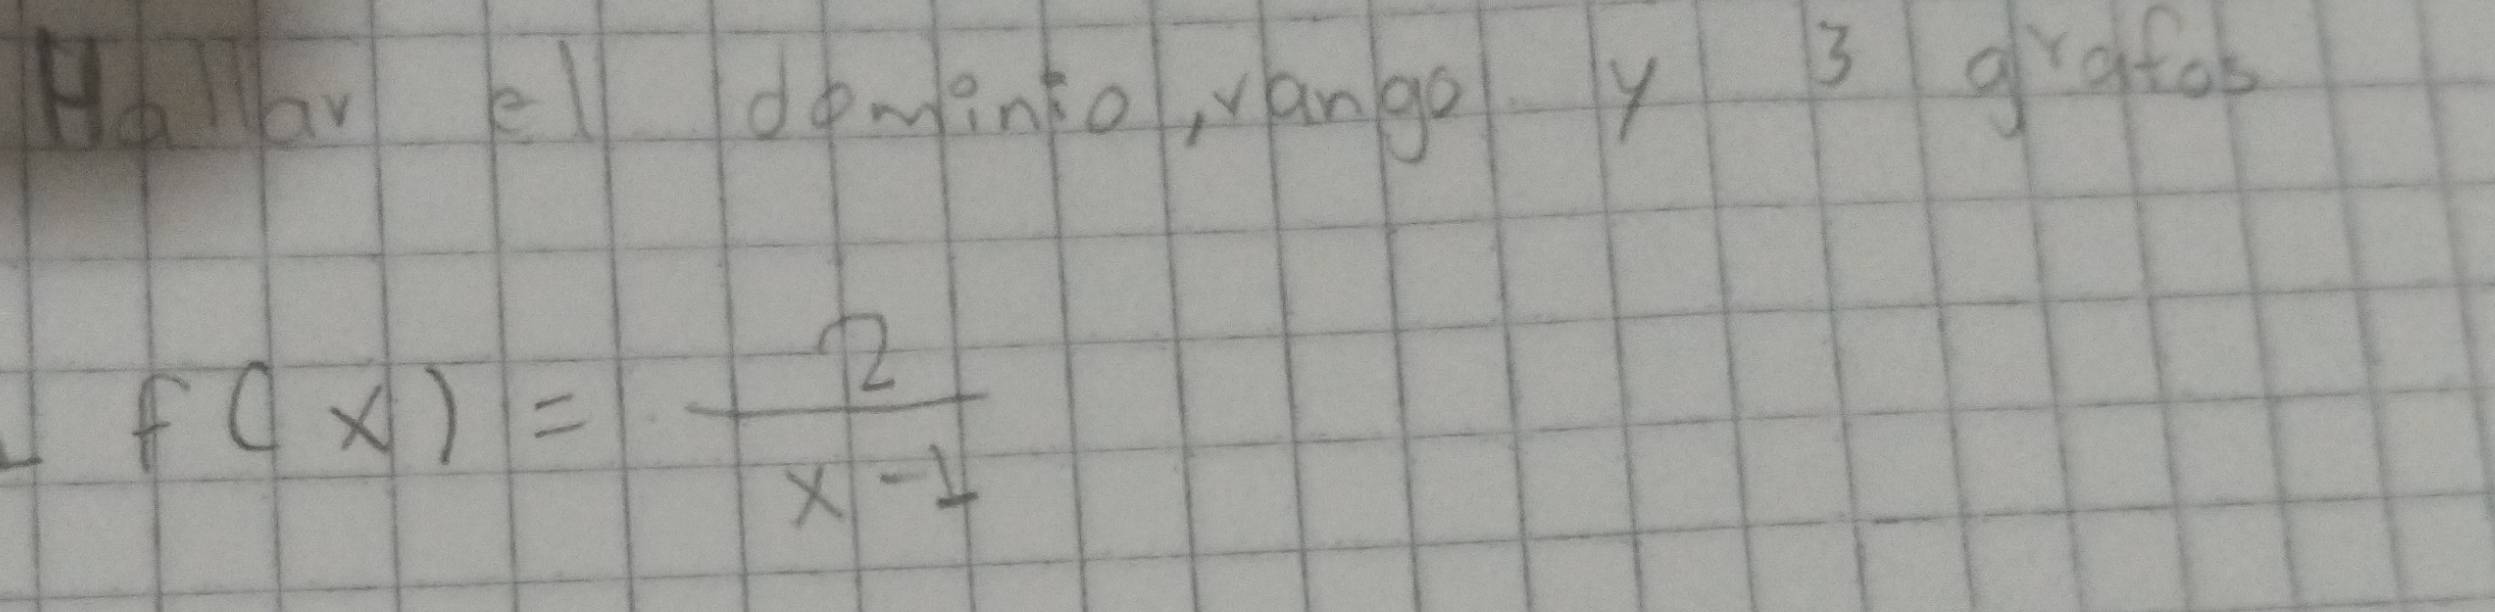 Hallar el dominio, rango y 3 grafos
f(x) = 2/(x-1)